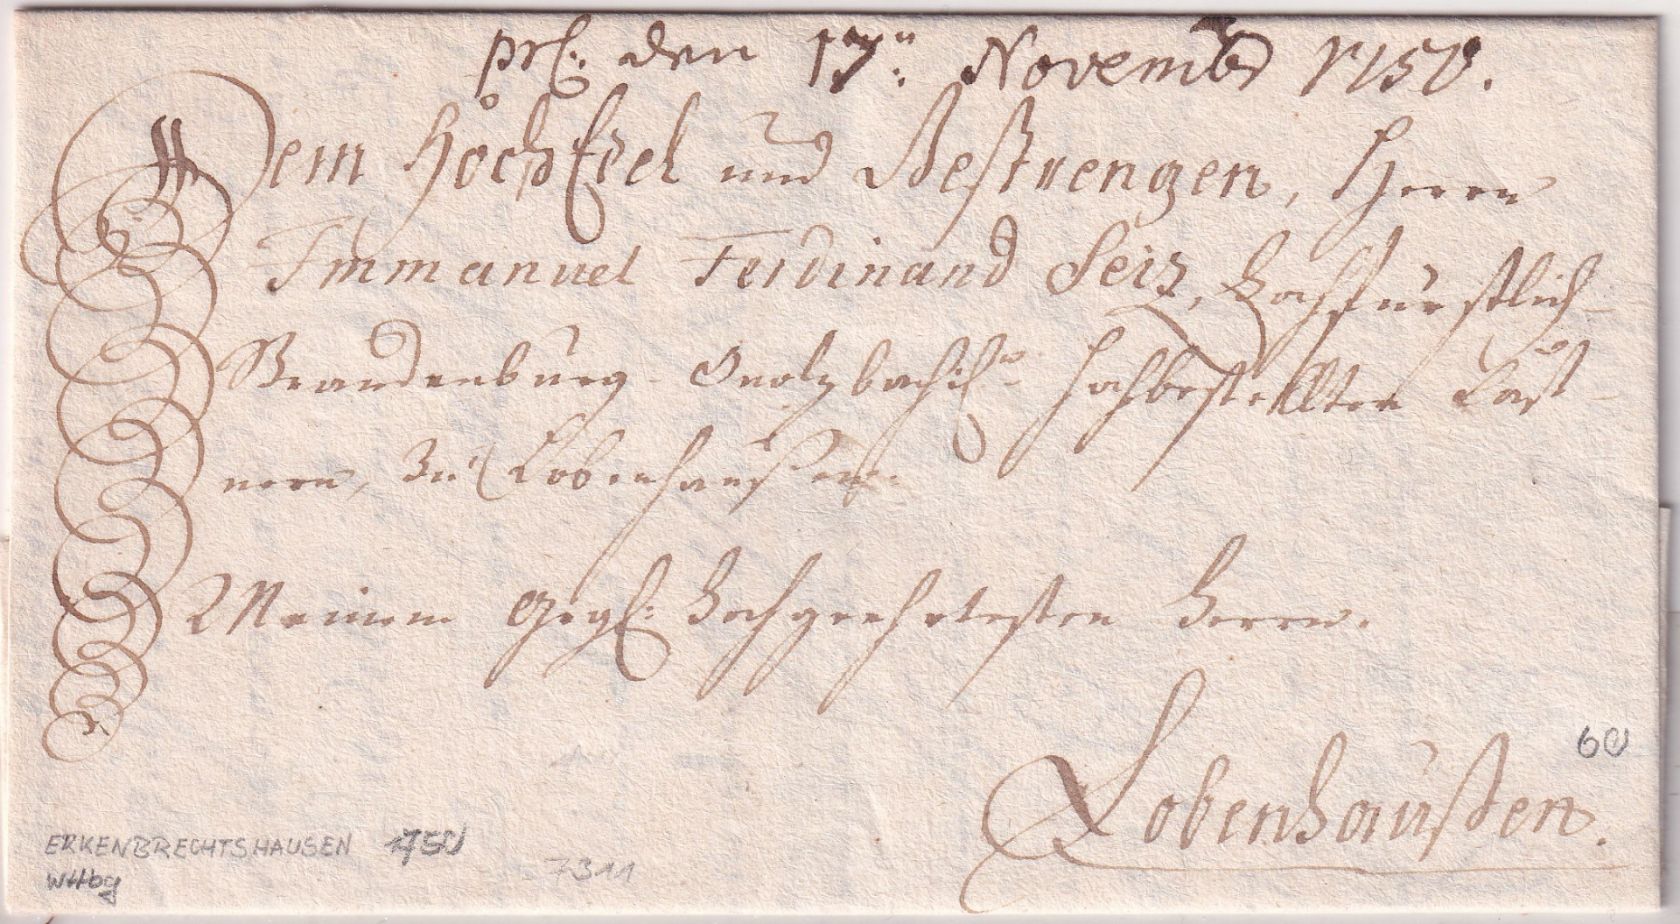 prs: den 17": Novembr 1750.
Dem HochEdel und Gestrengen, Herrn
Immanuel Ferdinand Seiz, Hochfürstlich-
Brandenburg-Onolzbachisn. hochbestellten Cast-
nern, Zu Lobenhaußen.
Meinem Hochgeehrtesten Herrn.
Lobenhaußen.
60
ERKENBRECHTSHAUSEN 1750
Wttbg
7311